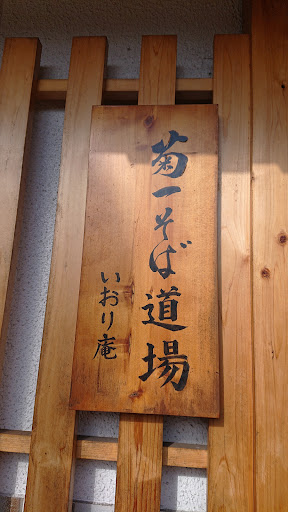 菊一そば道場
いおり庵